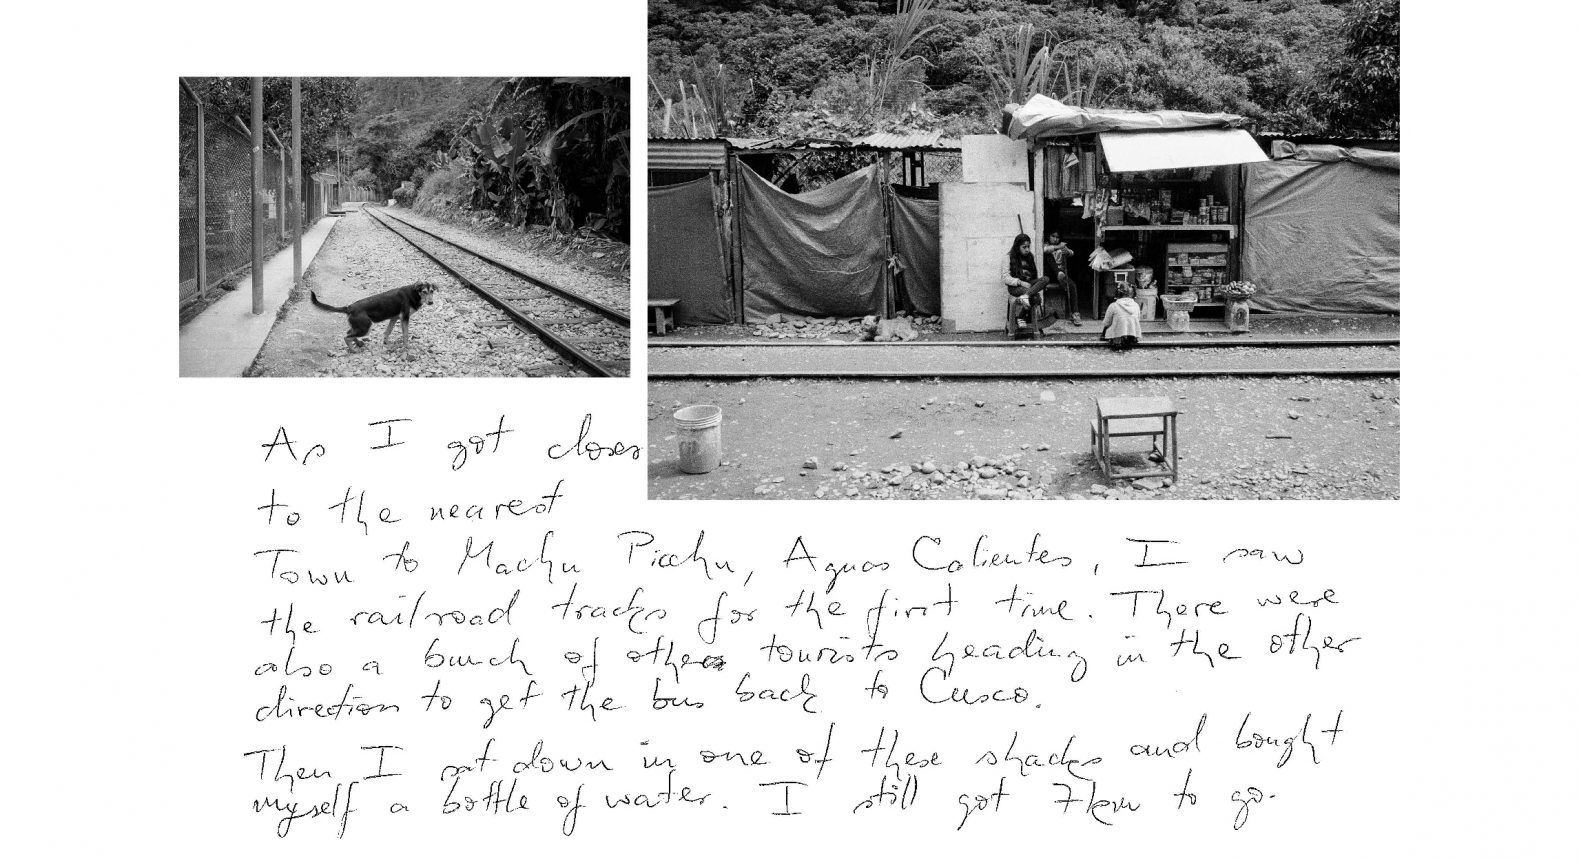 As I got closer
to the nearest
Town to Machu Picchu, Aguas Calientes, I saw
the railroad tracks for the first time. There were
also a bunch of other tourists heading in the other
direction to get the bus back to Cusco.
Then I sat down in one of these shacks and bought
myself a bottle of water. I still got 7km to go.